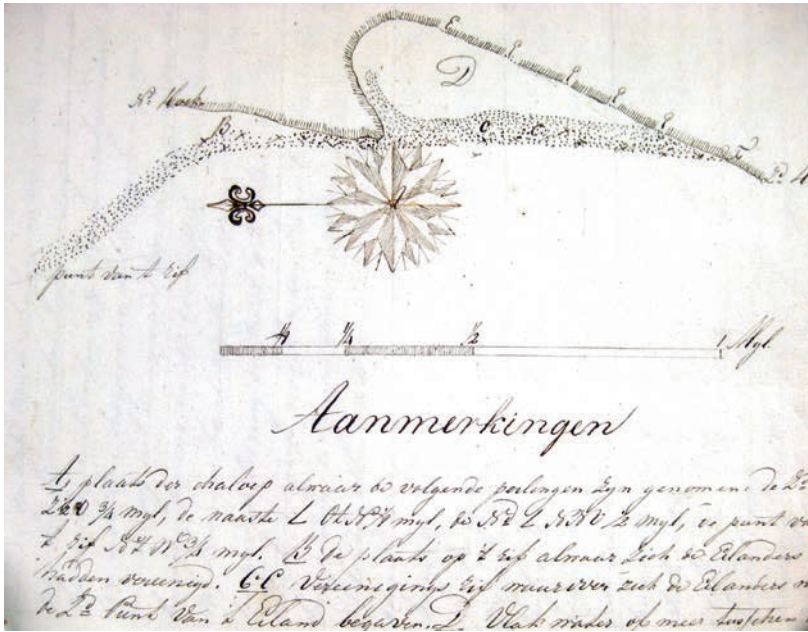 E
E
D
E
E
E
N: Hoek
B
C
C
E
F
Z: H
A
punt van 't rif
1/8 1/4 1/2 1 Myl.
Aanmerkingen
A, plaats der chaloep alwaar de volgende peilingen zyn genomen: de Z:
3/4 myl, de naaste L myl, de N: L NNO 1/2 myl, de punt v
't rif 3/4 myl. B de plaats op 't rif alwaar zich de Eilanders
hadden vereenigd. C:C Vereenigings rif waarover zich de Eilanders n
de Z: Punt van 't Eiland begaven. D Vlak water of meer tusschen